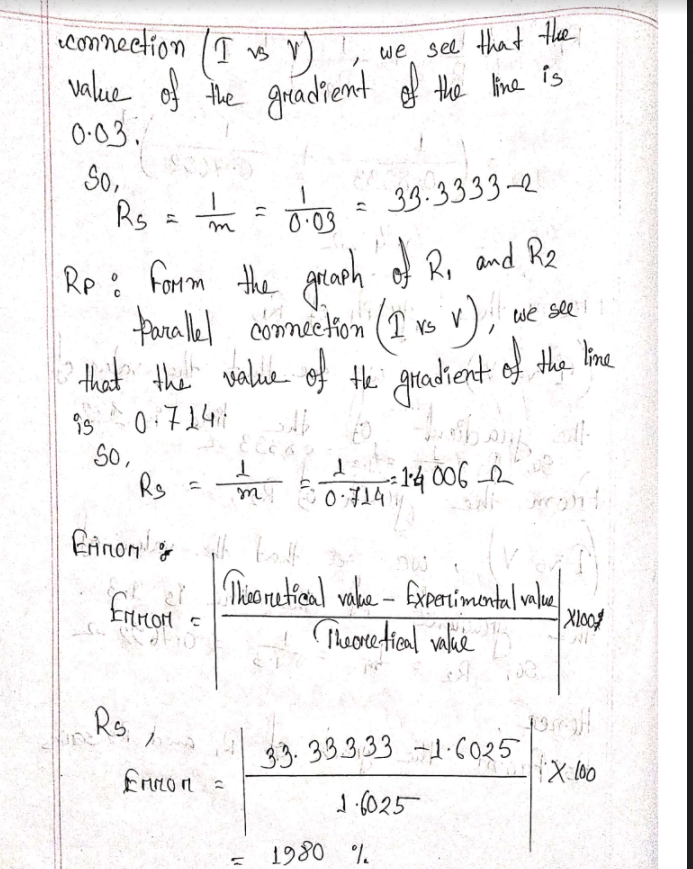 connection (I vs V), we see that the
value of the gradient of the line is
0.03.
So,
Rs = 1/m = 1/0.03 = 33.3333 Ω
RP : Form the graph of R1 and R2
parallel connection (I vs V), we see
that the value of the gradient of the line
is 0.714.
So,
Rs = 1/m = 1/0.714 = 1.4006 Ω
Error :
Error = |Theoretical value - Experimental value / Theoretical value| X100%
Rs,
Error = |33.33333 - 1.6025 / 1.6025| X 100
= 1980 %